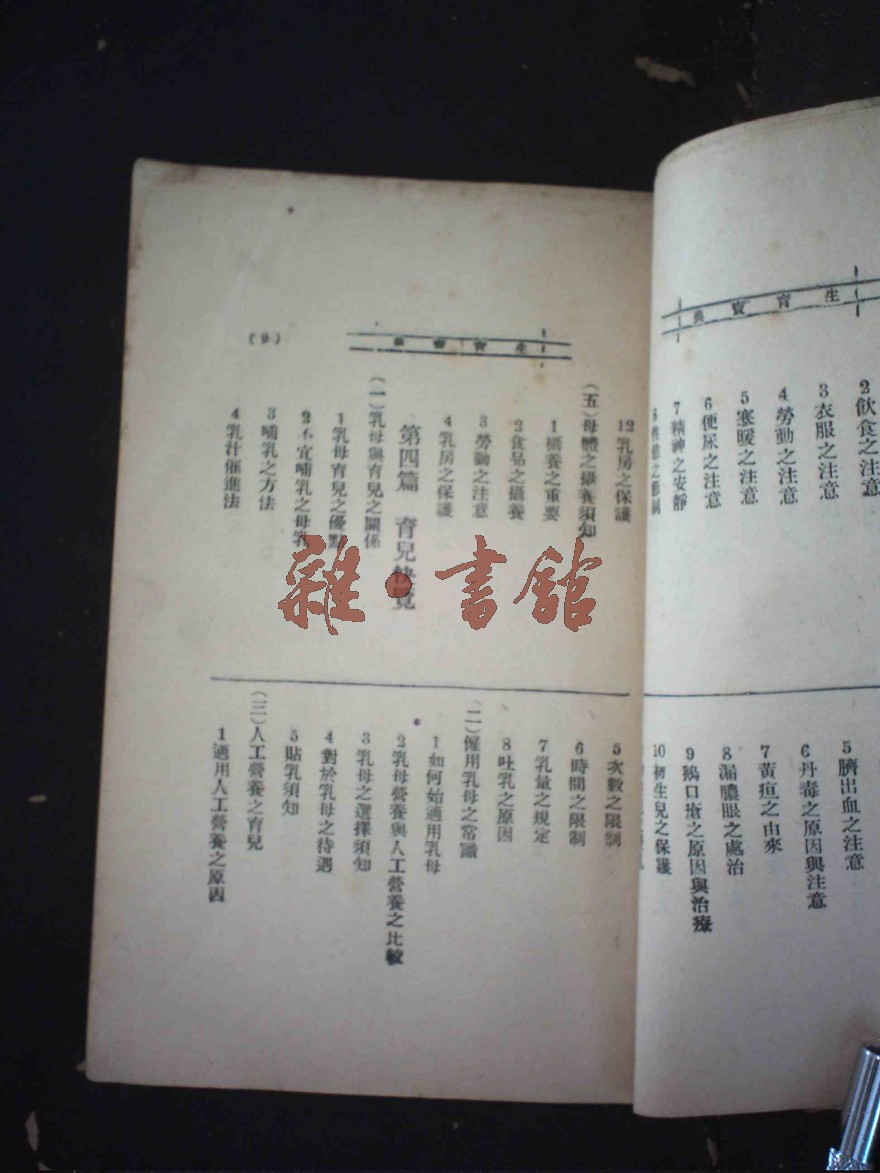 生育寶典
2飲食之注意
3衣服之注意
4勞動之注意
5寒暖之注意
6便尿之注意
7精神之安靜
5臍出血之注意
6丹毒之原因與注意
7黃疸之由來
8漏膿眼之處治
9鵝口瘡之原因與治療
10初生兒之保護
生育寶典
12乳房之保護
(五)母體之攝養須知
1攝養之重要
2食品之攝養
3勞動之注意
4乳房之保護
第四篇 育兒快覽
(一)乳母與育兒之關係
1乳母育兒之優點
2不宜哺乳之母乳
3哺乳之方法
4乳汁催進法
5次數之限制
6時間之限制
7乳量之規定
8吐乳之原因
(二)僱用乳母之常識
1如何始適用乳母
2乳母營養與人工營養之比較
3乳母之選擇須知
4對於乳母之待遇
5貼乳須知
(三)人工營養之育兒
1適用人工營養之原因
雜·書館